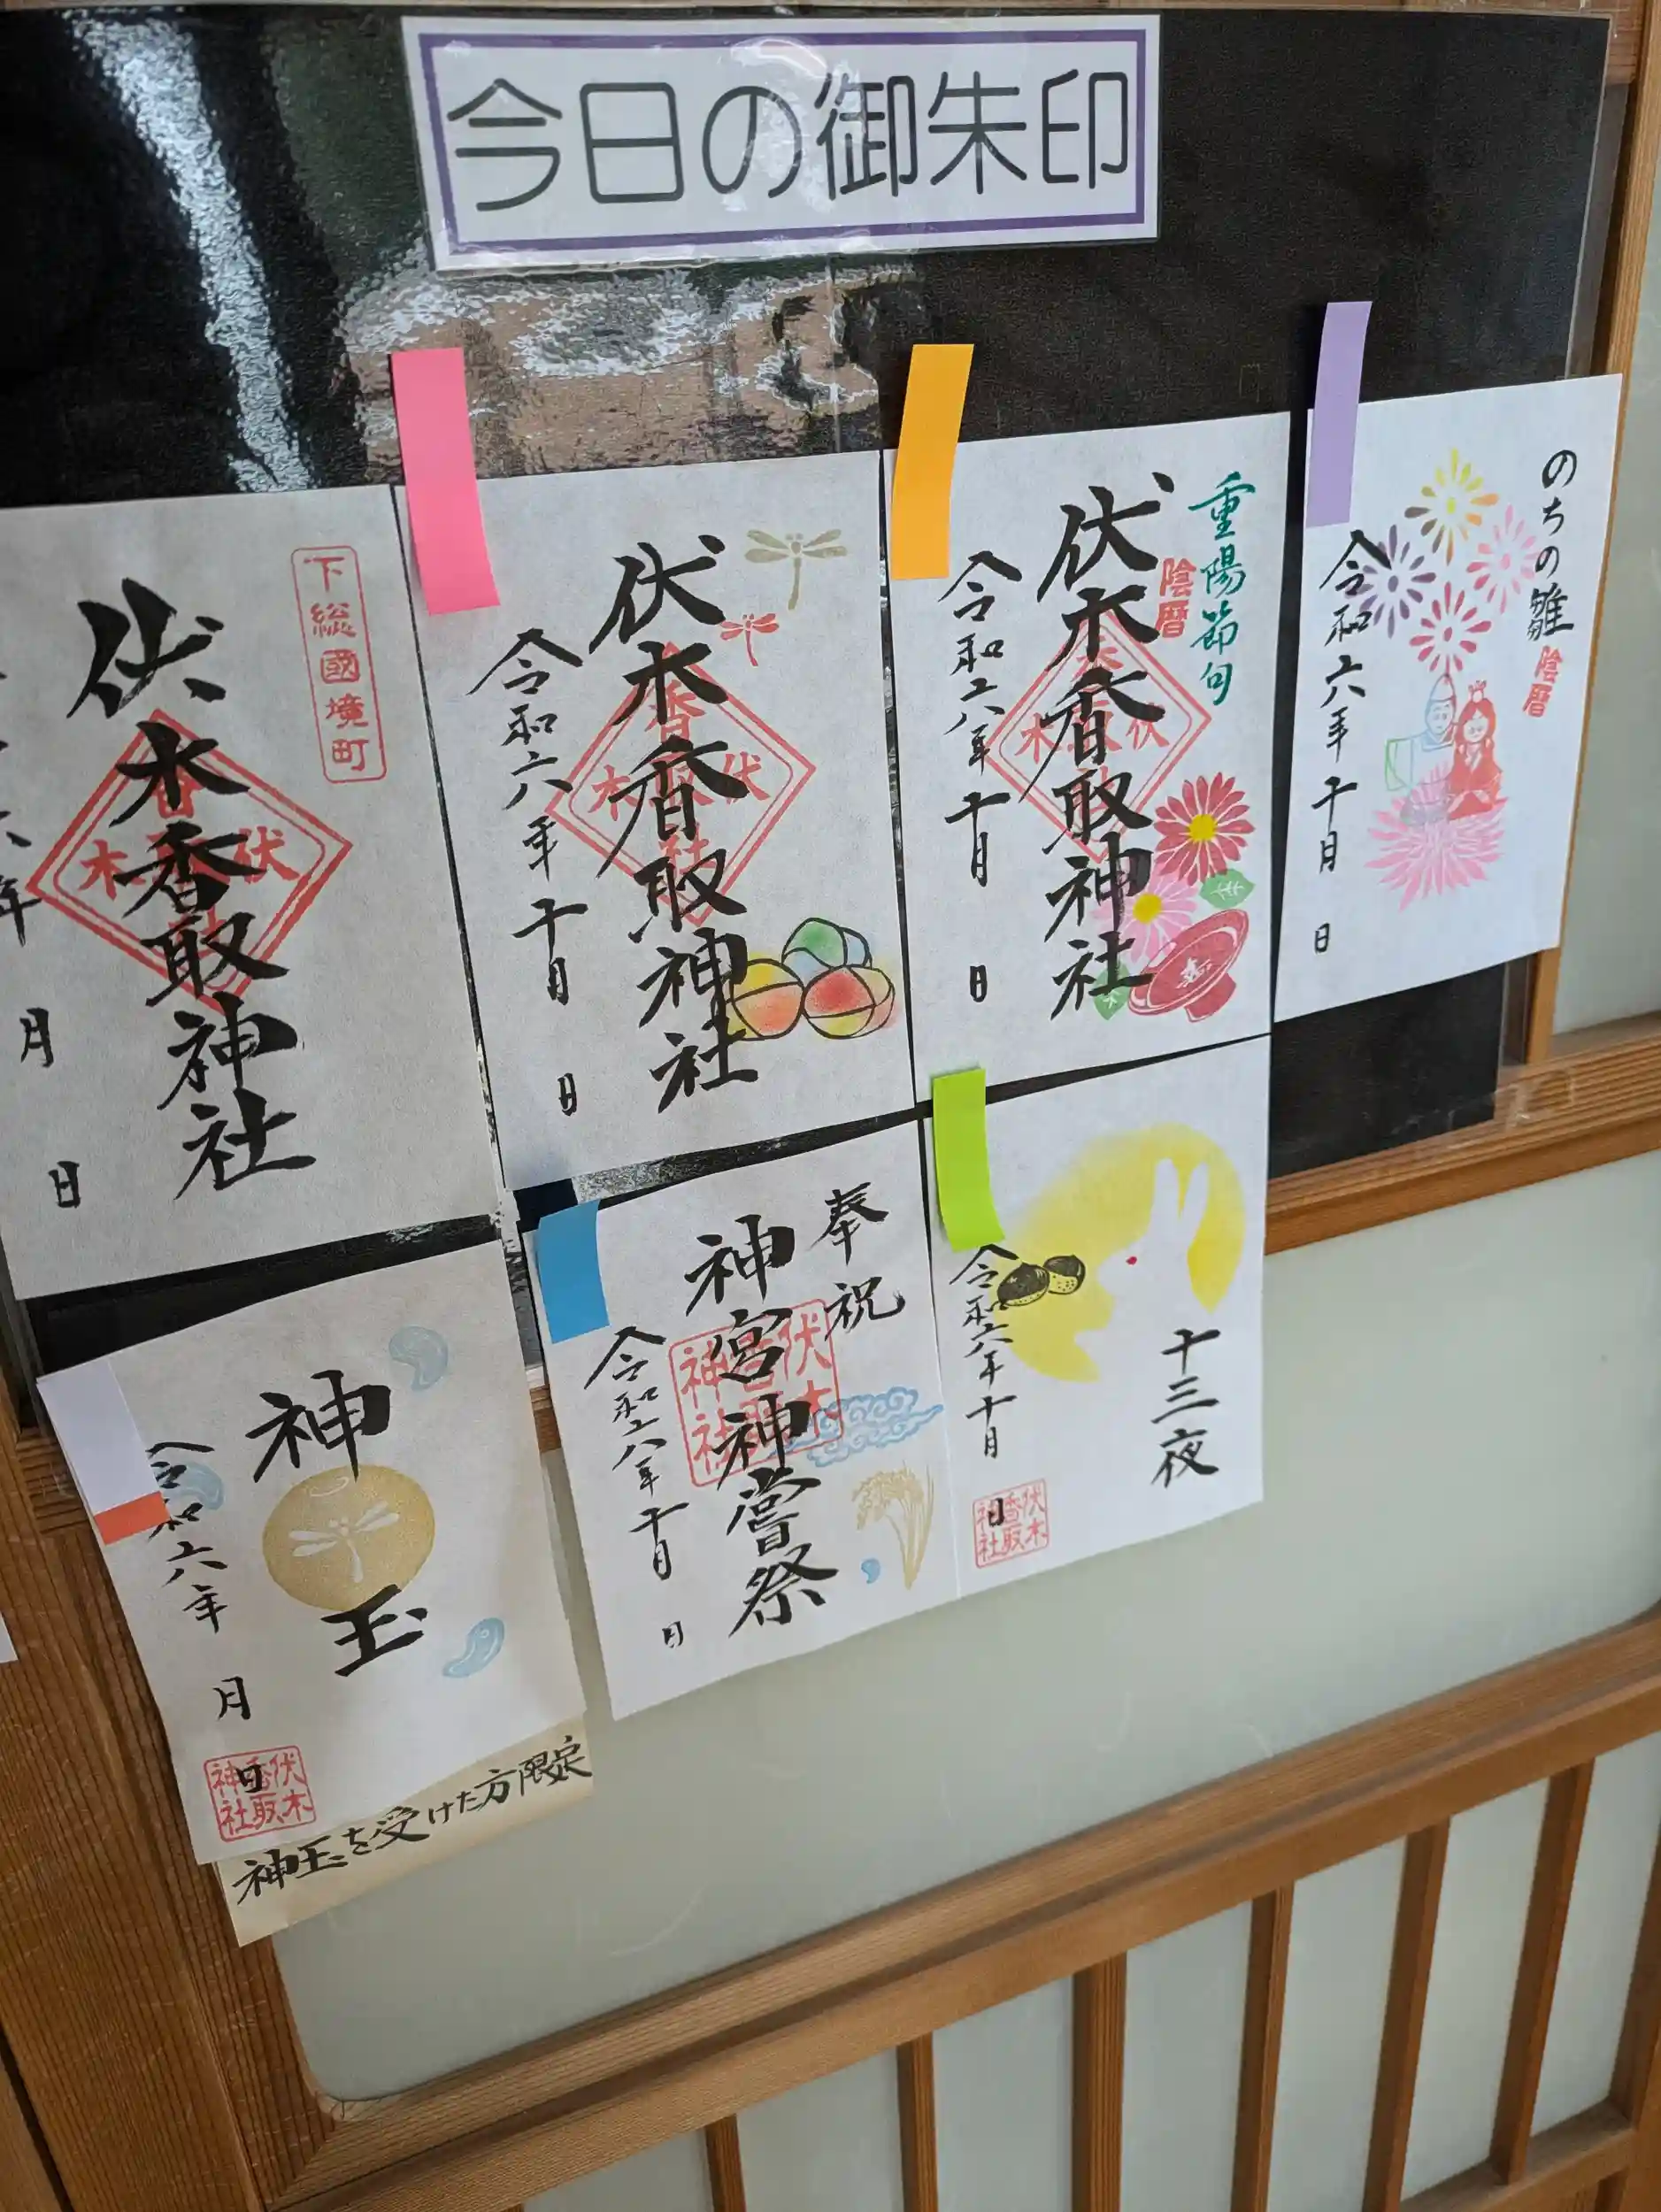 今日の御朱印
のちの雛
陰暦
令和六年十月
日
重陽節句
陰暦
伏木香取神社
令和六年十月
日
伏木香取神社
令和六年十月
日
下総國境町
伏木香取神社
年
月
日
十三夜
令和六年十月
日
伏木香取神社
奉祝
神宮神嘗祭
令和六年十月
日
神玉
令和六年
月
日
伏木香取神社
神玉を受けた方限定